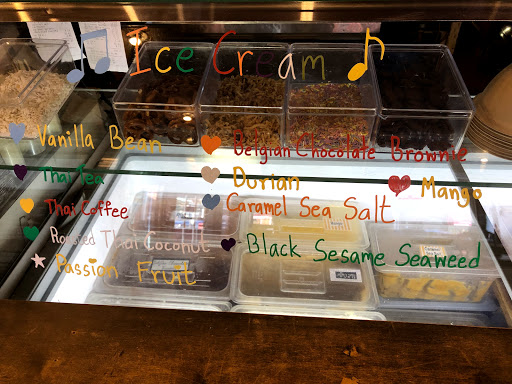 Ice Cream
Vanilla Bean
Thai Tea
Thai Coffee
Roasted Thai Coconut
Passion Fruit
Belgian Chocolate Brownie
Durian
Mango
Caramel Sea Salt
Black Sesame Seaweed